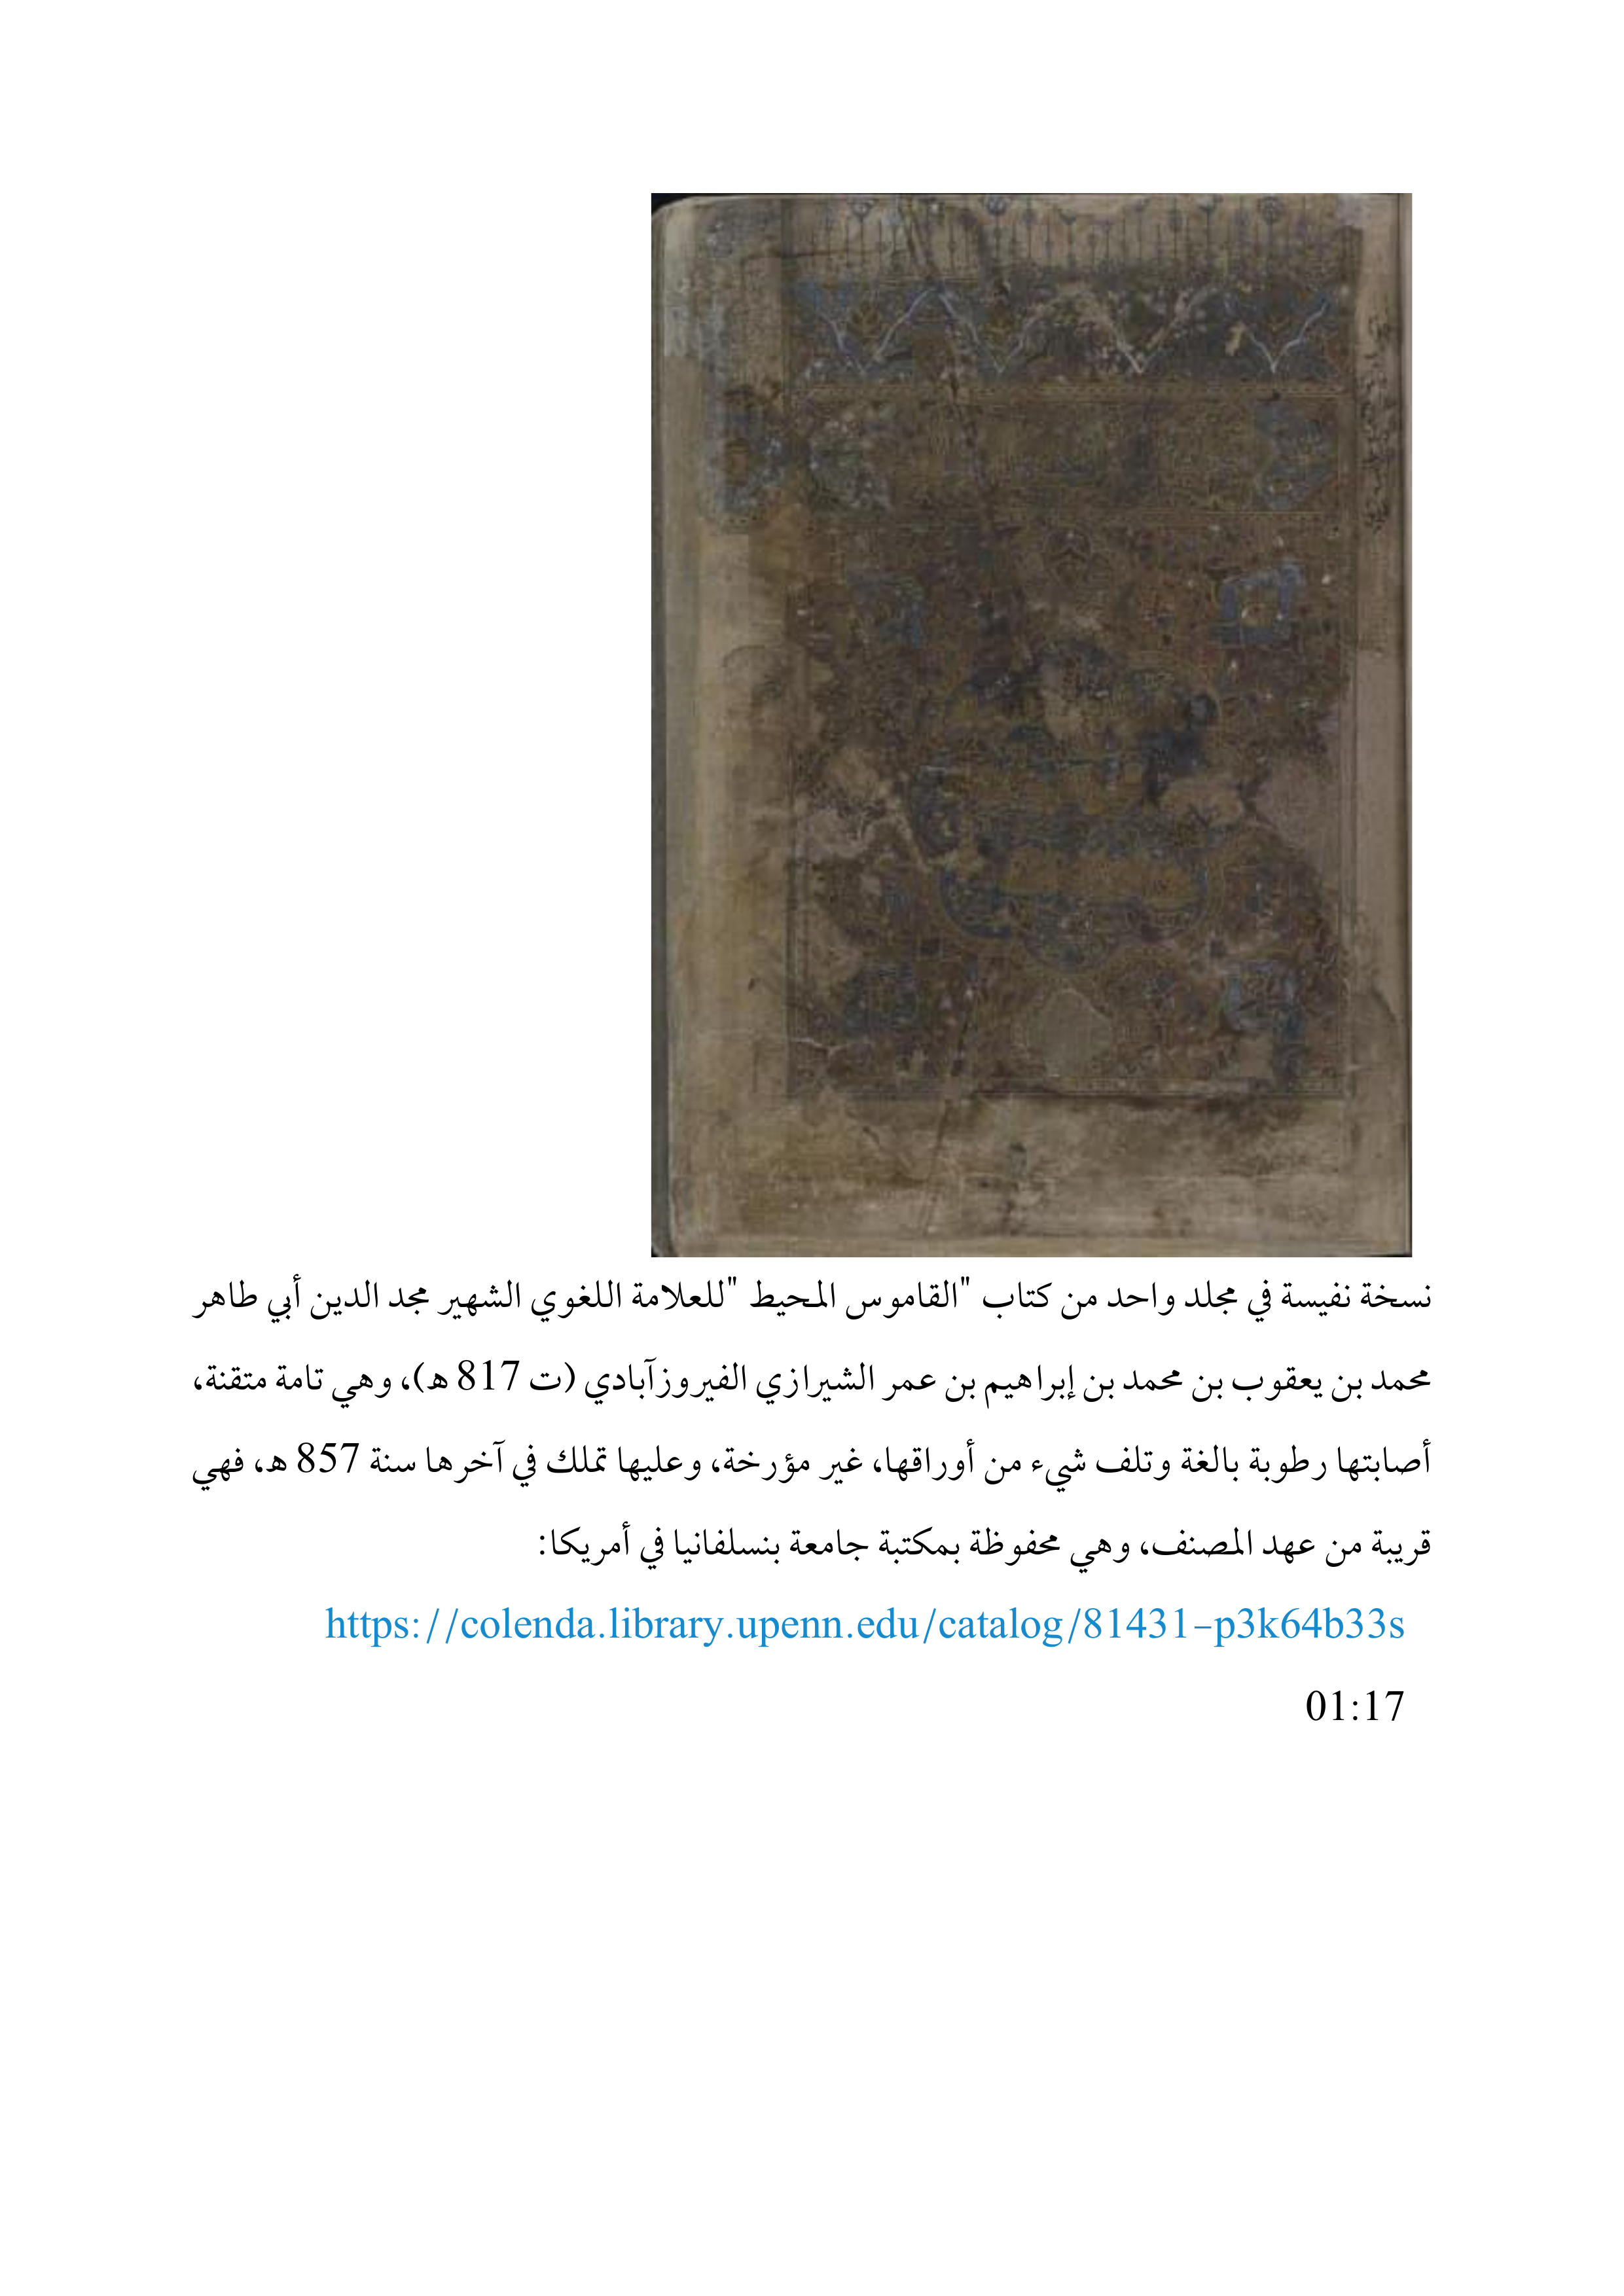 نسخة نفيسة في مجلد واحد من كتاب "القاموس المحيط "للعلامة اللغوي الشهير مجد الدين أبي طاهر
محمد بن يعقوب بن محمد بن إبراهيم بن عمر الشيرازي الفيروزآبادي (ت 817 ه)، وهي تامة متقنة،
أصابتها رطوبة بالغة وتلف شيء من أوراقها، غير مؤرخة، وعليها تملك في آخرها سنة 857 ه، فهي
قريبة من عهد المصنف، وهي محفوظة بمكتبة جامعة بنسلفانيا في أمريكا:
https://colenda.library.upenn.edu/catalog/81431-p3k64b33s
01:17